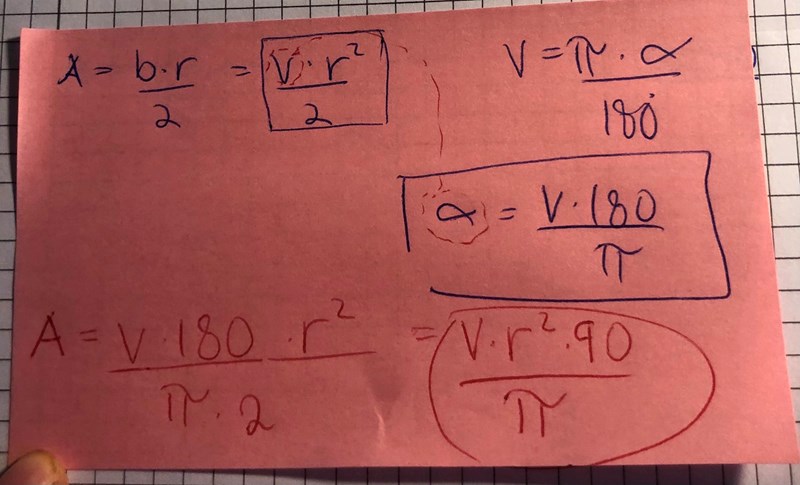 A = b·r/2 = v·r²/2
V = π·α/180
α = V·180/π
A = V·180·r²/π·2 = V·r²·90/π